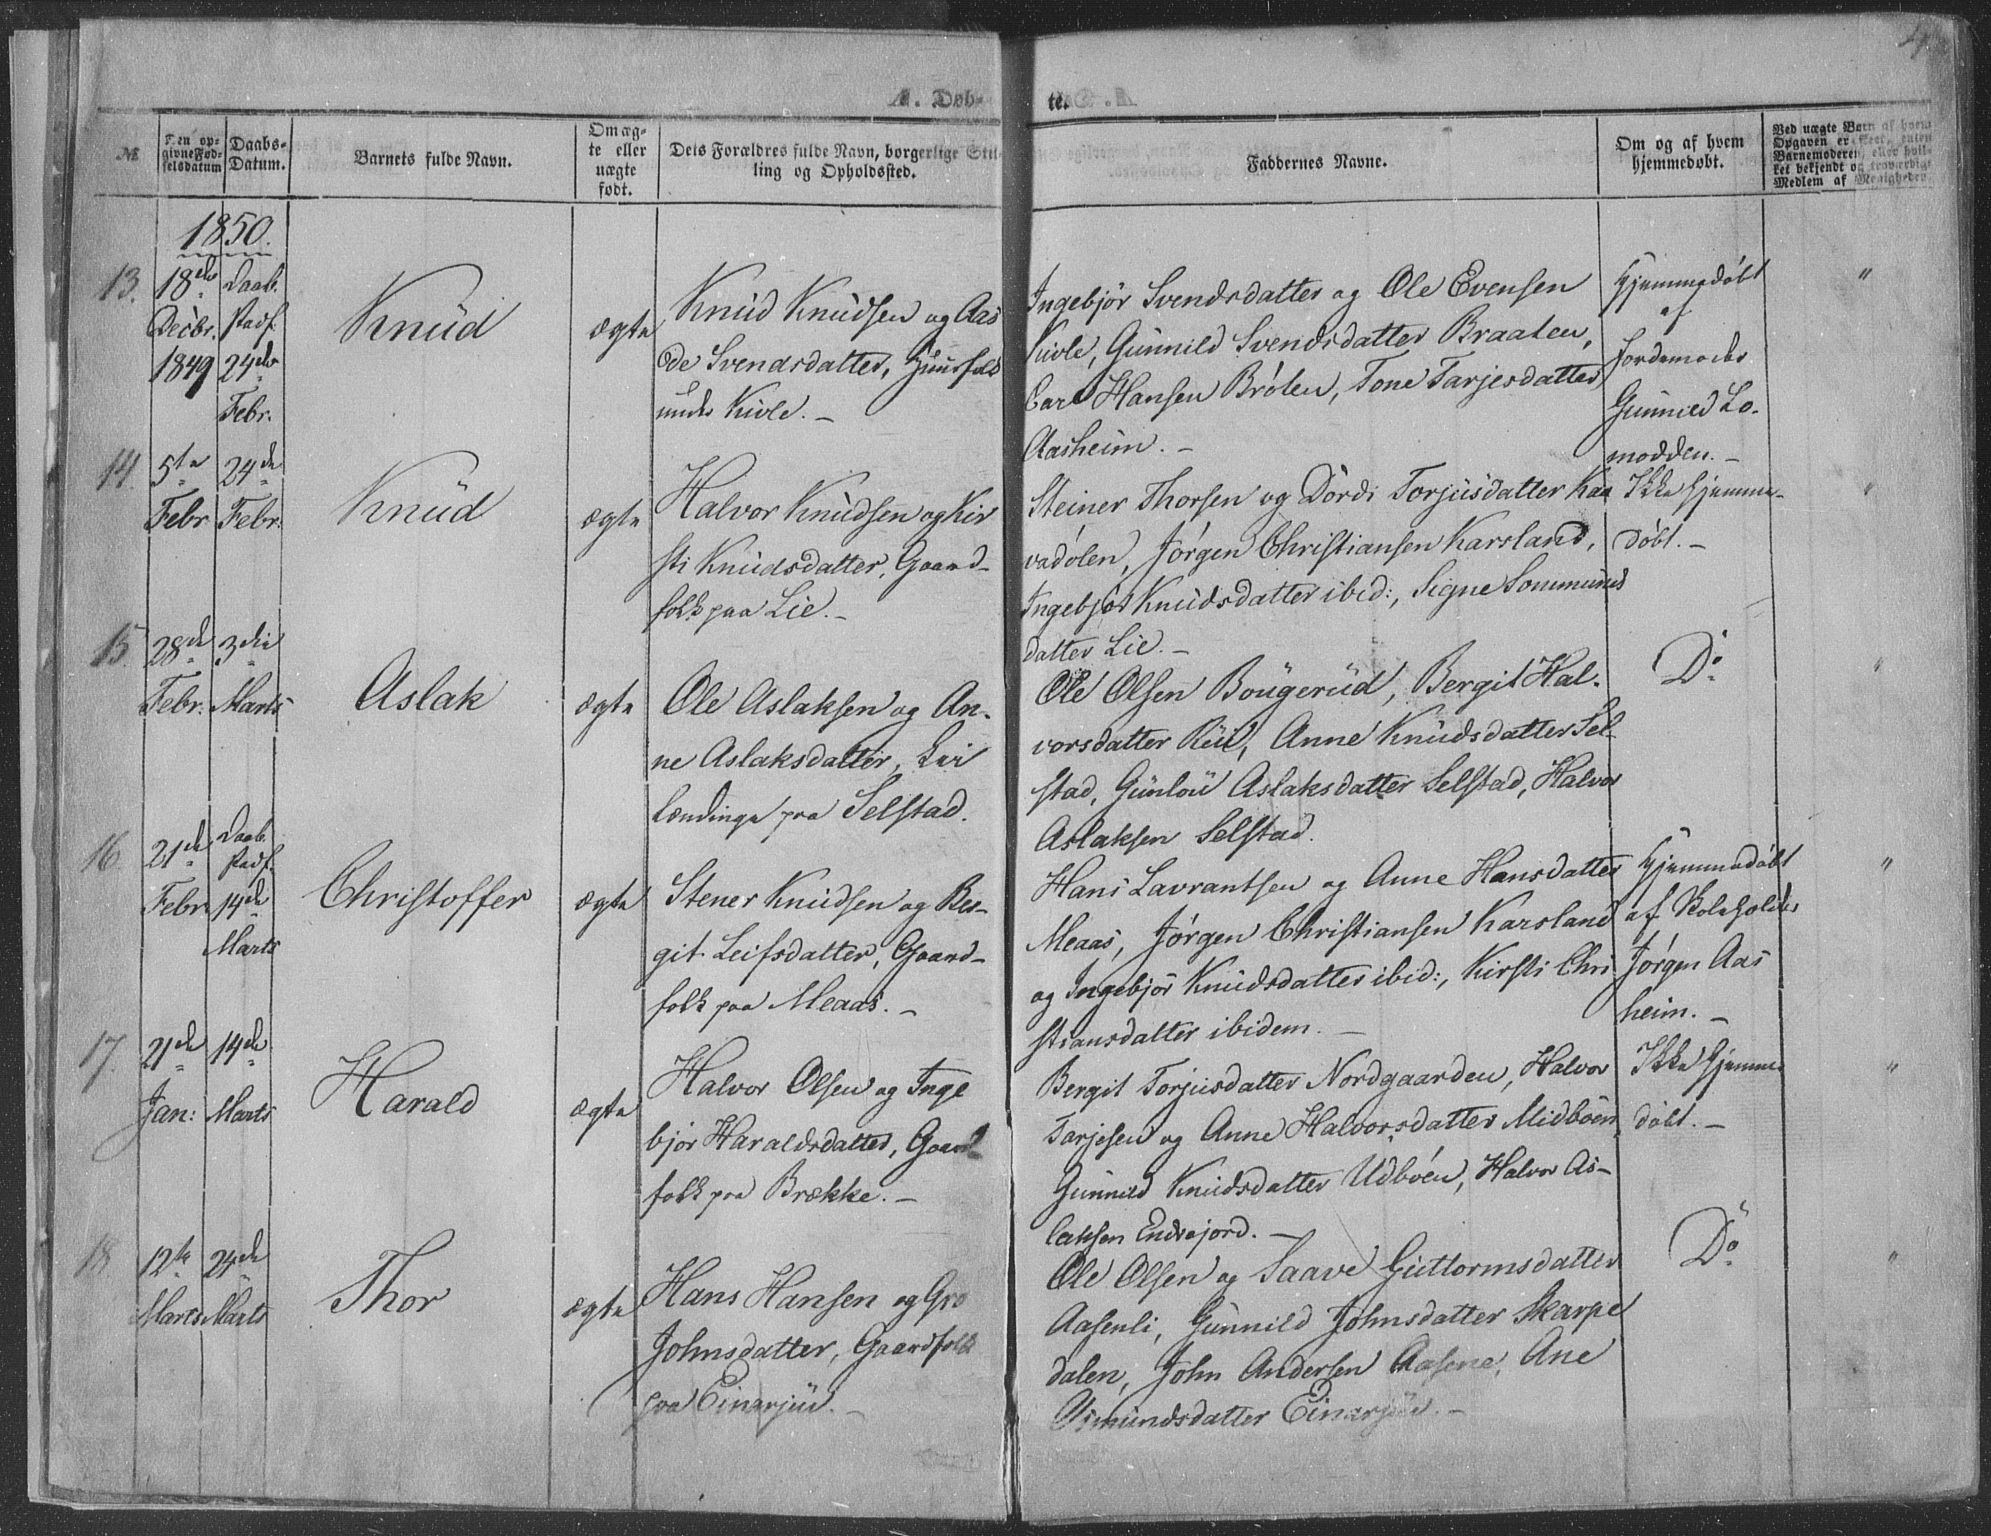 4
A. Døb-
te.
№
Den op-
givne Fød-
selsdatum
Daabs-
Datum.
Barnets fulde Navn.
Om æg-
te eller
uægte
født.
Dets Forældres fulde Navn, borgerlige Stil-
ling og Opholdssted.
Faddernes Navne.
Om og af hvem
hjemmedøbt.
Ved uægte Børn af hvem
Opgaven er skeet, enten
Barnemoderen, eller hvil-
ket bekjendt og troværdigt
Medlem af Menigheden.
1850.
13.
18de
Decbr.
1849
Daab.
Stadf.
24de
Febr.
Knud
ægte
Knud Knudsen og Aas
de Svendsdatter, Huusfolk
under Kivle. –
Ingebjör Svendsdatter og Ole Evensen
Kivle, Gunnild Svendsdatter Braaten,
Carl Hansen Brölen, Tone Tarjesdatter
Aasheim. –
Hjemmedøbt
af
Jordemoder
Gunnild Lo-
modden. –
"
14.
5te
Febr
24de
Febr.
Knud
ægte
Halvor Knudsen og Kir
sti Knudsdatter, Gaard-
folk paa Lie. –
Steiner Thorsen og Dördi Torjusdatter Kaa
vadölen, Jörgen Christiansen Karsland,
Ingebjör Knudsdatter ibid:, Signe Sommunds
datter Lie. –
Ikke hjemme-
døbt. –
"
15.
28de
Febr.
3die
Marts
Aslak
ægte
Ole Aslaksen og An-
ne Aslaksdatter, Lei
lændinge paa Selstad.
Ole Olsen Bougerud, Bergit Hal-
vorsdatter Rui, Anne Knudsdatter Sel-
stad, Gunlou Aslaksdatter Selstad, Halvor
Aslaksen Selstad.
Do
"
16.
21de
Febr
Daab.
Stadf.
14de
Marts
Christoffer
ægte
Stener Knudsen og Ber-
git Leifsdatter, Gaard-
folk paa Meaas. –
Hans Lavrantsen og Anne Hansdatter
Meaas, Jörgen Christiansen Karsland
og Ingebjör Knudsdatter ibid:, Kirsti Chri
stiansdatter ibidem. –
Hjemmedøbt
af Skoleholder
Jörgen Aas
heim. –
"
17.
21de
Jan:
14de
Marts
Harald
ægte
Halvor Olsen og Inge
björ Haraldsdatter, Gaard
folk paa Brække. –
Bergit Torjusdatter Nordgaarden, Halvor
Tarjesen og Anne Halvorsdatter Midböen,
Gunnild Knudsdatter Udböen, Halvor As-
laksen Endrejord. –
Ikke hjemme
døbt. –
"
18.
12te
Marts
24de
Marts
Thor
ægte
Hans Hansen og Gro
Johnsdatter, Gaardfolk
paa Einarjuv. –
Ole Olsen og Saave Guttormsdatter
Aasenli, Gunnild Johnsdatter Skarpe
dalen, John Andersen Aasene, Ane
Osmundsdatter Einarjuv. –
Do
"